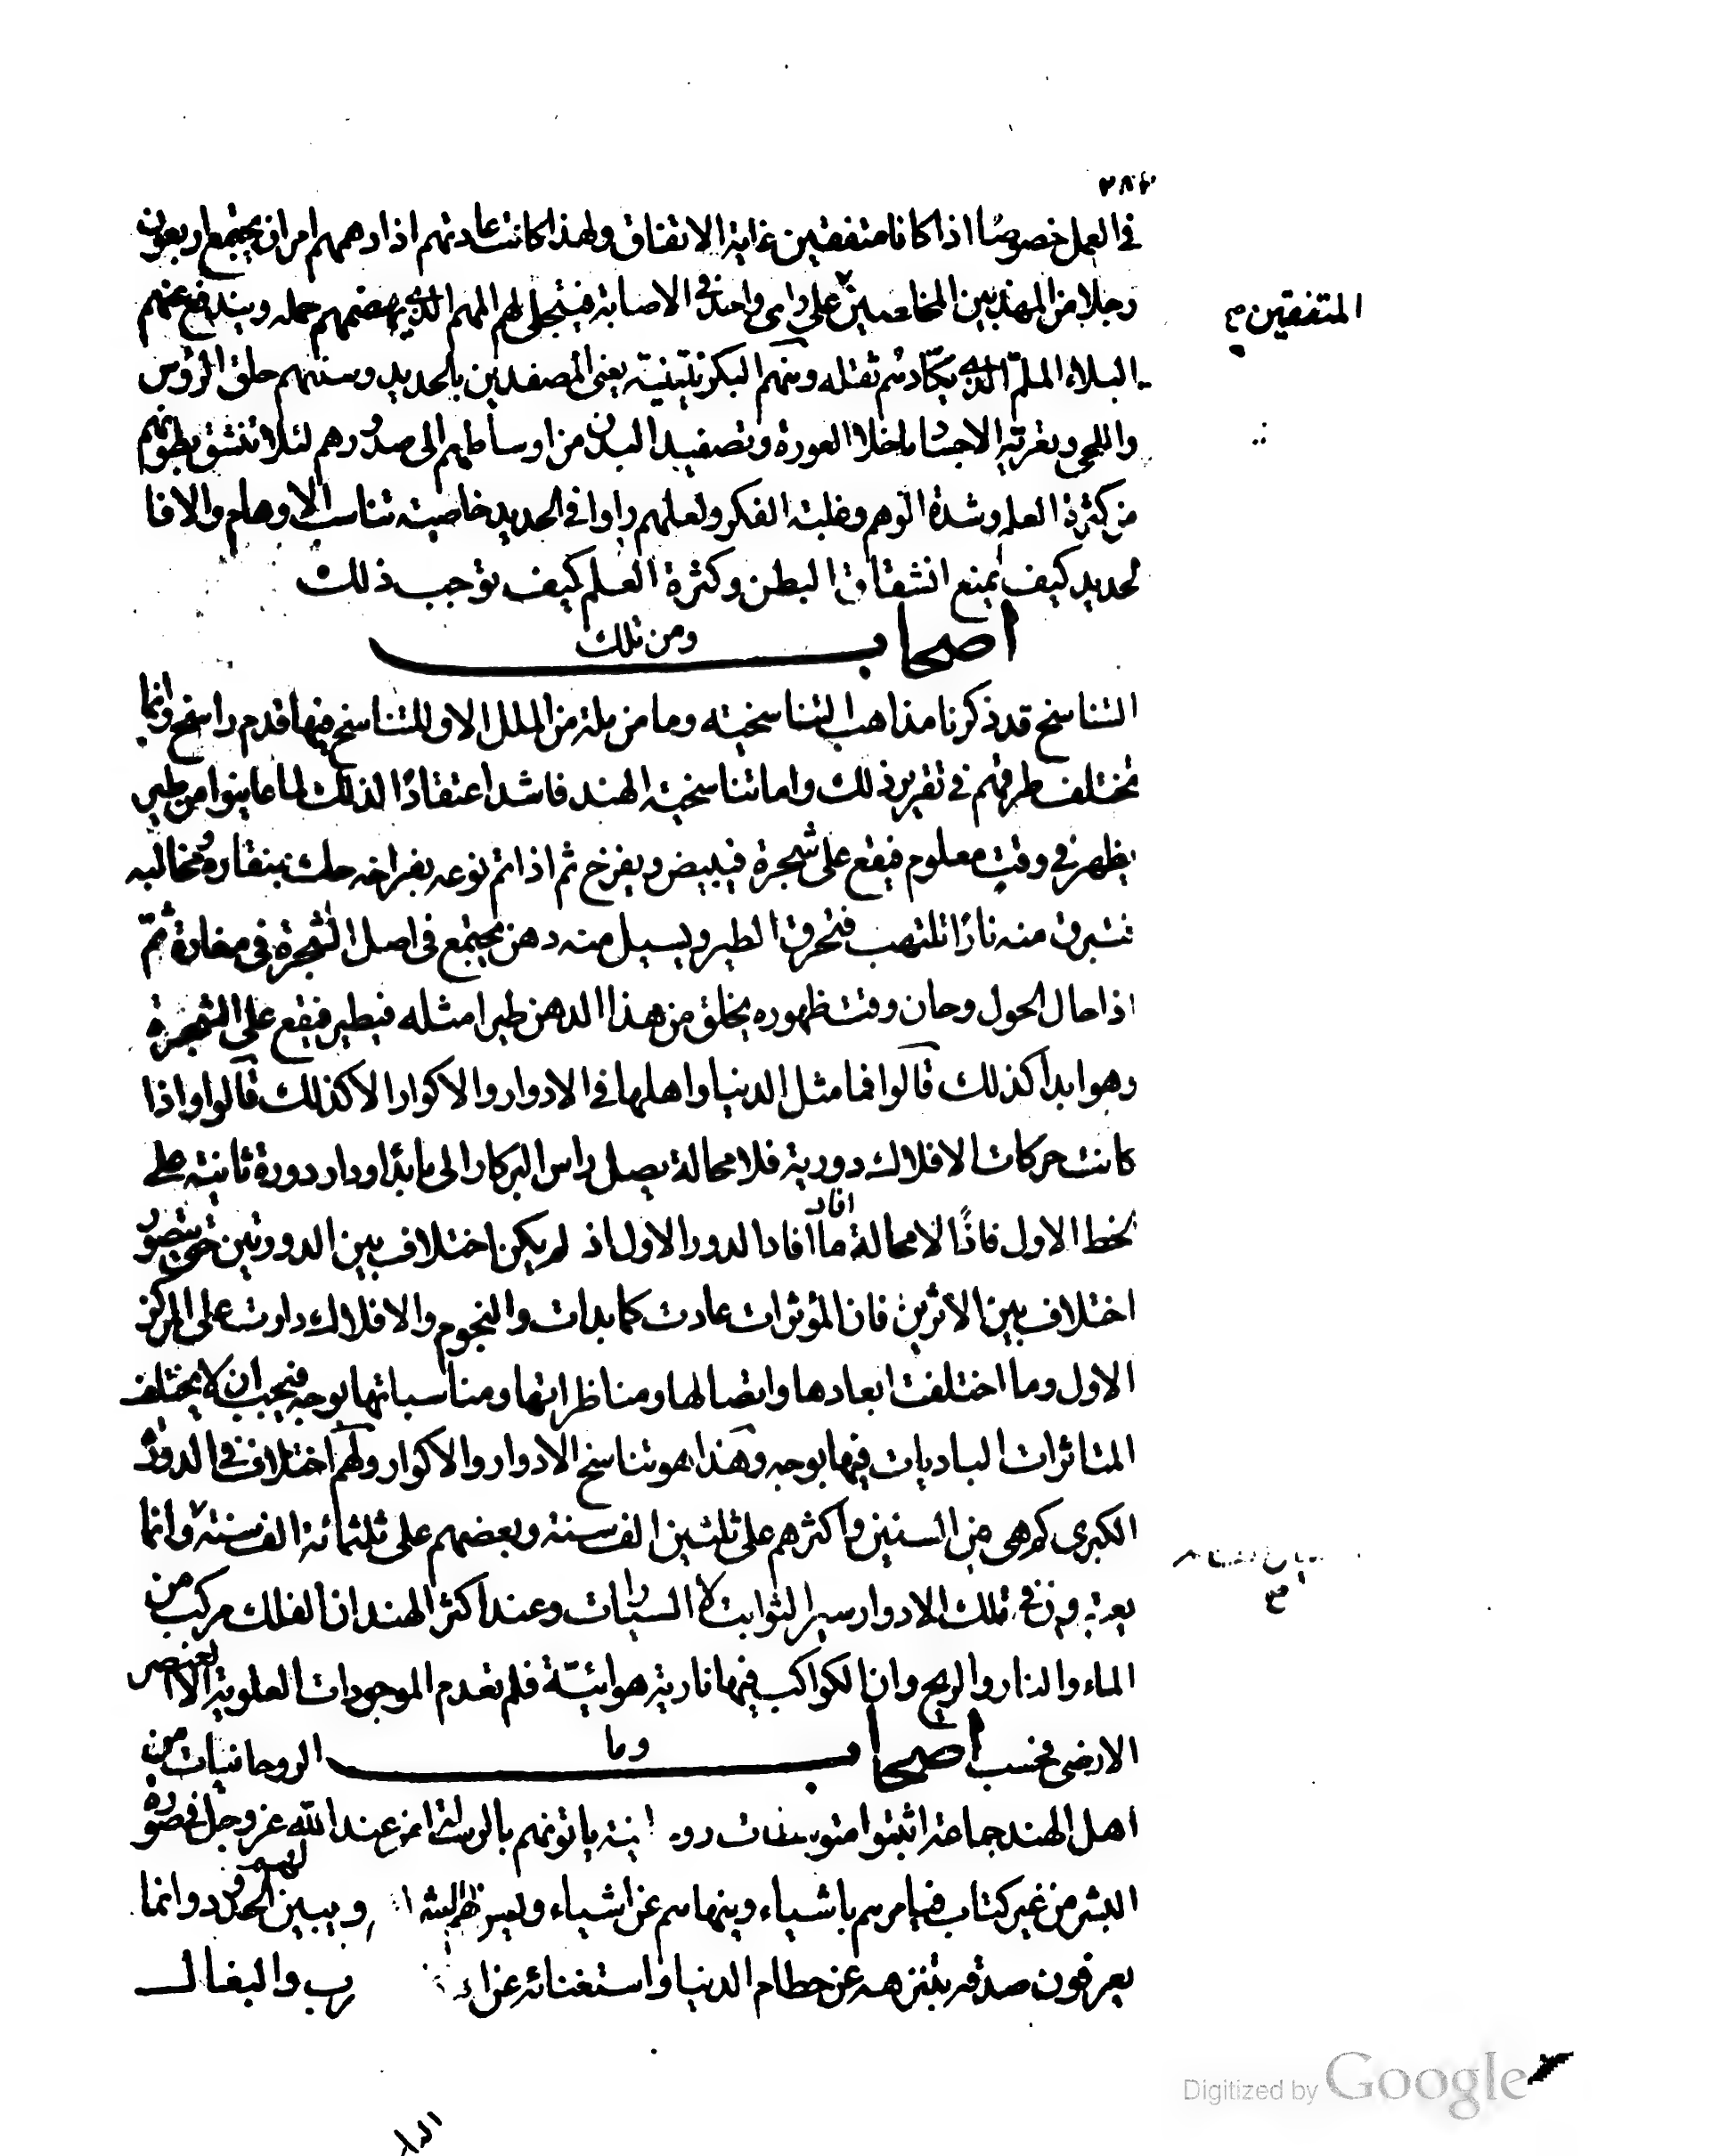 ٣٨٢
في العمل خصوصًا اذا كانا متفقين غاية الاتفاق ولهذا كانت عادتهم اذا دهمهم امر ان يجتمع اربعون
رجلا من المهذبين المخلصين على راى واحد في الاصابة فيتجلى لهم المهم الذي يهضمهم حمله ويندفع عنهم
المتفقين صح
البلاء الملمّ الذي يكادهم ثقله ومنهم البكرنتينية يعنى المصفدين بالحديد وسنتهم حلق الرؤس
واللحى وتعرية الاجساد ما خلا العورة وتصفيد البدن من اوساطهم الى صدورهم لئلا تنشق بطونهم
من كثرة العلم وشدة الوهم وغلبة الفكر ولعلهم راوا في الحديد خاصية تناسب الاوهام والا فا
لحديد كيف يمنع انشقاق البطن وكثرة العلم كيف توجب ذلك
ومن تلك اصحاب
التناسخ قد ذكرنا مذاهب التناسخية وما من ملة من الملل الا وللتناسخ فيها قدم راسخ وانما
تختلف طرقهم في تقرير ذلك واما تناسخية الهند فاشد اعتقادًا لذلك لما عاينوا من طير
يظهر في وقت معلوم فيقع على شجرة فيبيض ويفرخ ثم اذا تم نوعه بفراخه حك بمنقاره ومخالبه
فتبرق منه نارًا تلتهب فتحرق الطير ويسيل منه دهن يجتمع في اصل الشجرة في مغارة ثم
اذا حال الحول وحان وقت ظهوره يخلق من هذا الدهن طيرا مثله فيطير فيقع على الشجرة
وهو ابدا كذلك قالوا فما مثل الدنيا واهلها في الادوار والاكوار الا كذلك قالوا واذا
كانت حركات الافلاك دورية فلا محالة يصل راس البركار الى ما بدا ودار دورة ثانية على
لخط الاول فاذًا لا محالة ما افاد الدور الاول اذ لم يكن اختلاف بين الدورتين حتى يتصور
افاد
اختلاف بين الاثرين فان المؤثرات عادت كما بدات والنجوم والافلاك دارت على المركز
الاول وما اختلفت ابعادها واتصالها ومناظراتها ومناسباتها بوجه فيجب ان لا يختلف
المتاثرات الباديات فيها بوجه وهذا هو تناسخ الادوار والاكوار ولهم اختلاف في الدورة
الكبرى كم هى من السنين واكثرهم على ثلثين الف سنة وبعضهم على ثلثمائة الف سنة وانما
يعتبرون في تلك الادوار سير الثوابت لا السيارات وعند اكثر الهند ان الفلك مركب من
الماء والنار والريح وان الكواكب فيها نارية هوائيّة فلم تعدم الموجودات العلوية الا العنصر
الارضى فحسب وما اصحاب الروحانيات من
اهل الهند جماعة اثبتوا متوسطات ياتونهم بالرسالة من عند الله عز وجل في صورة
البشر من غير كتاب فيامرهم باشياء وينهاهم عن اشياء ويسن لهم ويبين لهم الحدود وانما
يعرفون صدقه بتنزهه عن حطام الدنيا واستغنائه عن والبغال
Digitized by Google